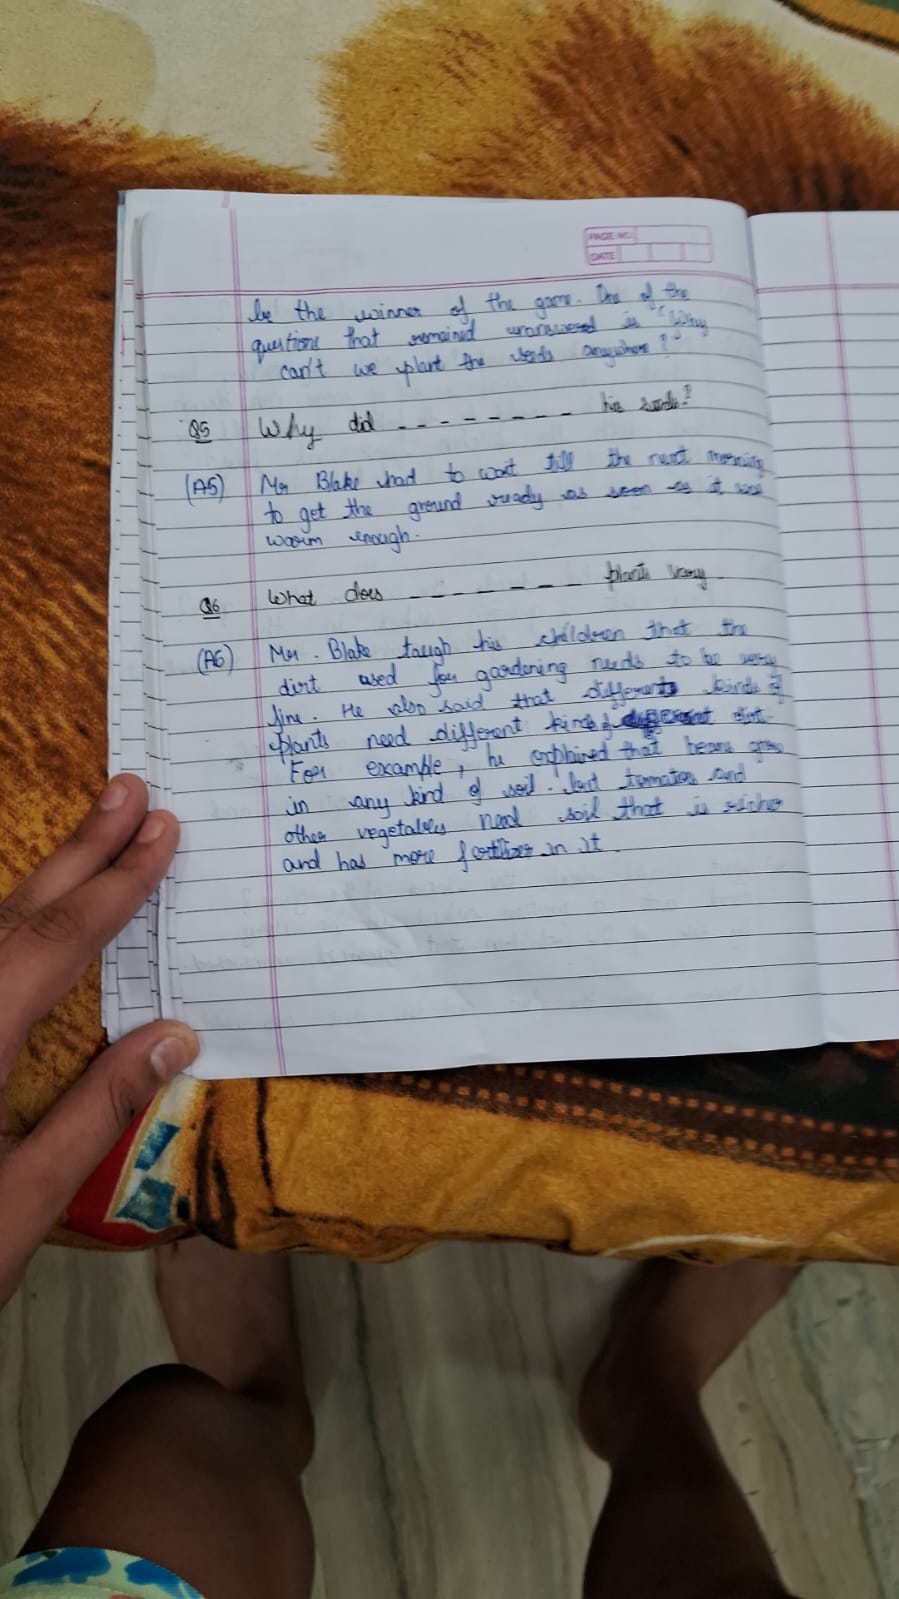 PAGE NO.
DATE
be the winner of the game. One of the
questions that remained unanswered is "Why
can't we plant the seeds anywhere?"
Q5 Why did _ _ _ _ _ _ _ _ his seeds?
(A5) Mr Blake had to wait till the next morning
to get the ground ready as soon as it was
warm enough.
Q6 What does _ _ _ _ _ _ _ plants vary
(A6) Mr. Blake taugh his children that the
dirt used for gardening needs to be very
fine. He also said that different kinds of
plants need different kinds of dirt.
For example, he explained that beans grow
in any kind of soil. but tomatoes and
other vegetables need soil that is richer
and has more fertilizer in it.